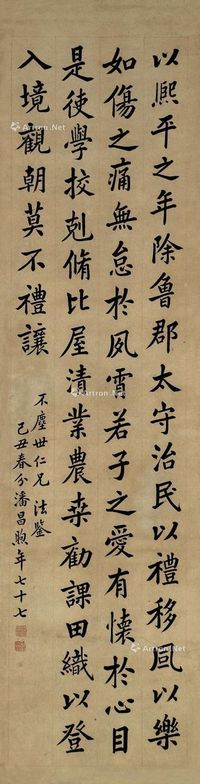 以熈平之年除魯郡太守治民以禮移風以樂
如傷之痛無怠於夙霄若子之愛有懷於心目
是使學挍剋脩比屋清業農桒勸課田織以登
入境觀朝莫不禮讓
不塵世仁兄 法鑒
己丑春分潘昌煦年七十七
Artron.Net
Artron.Net
Artron.Net
Artron.Net